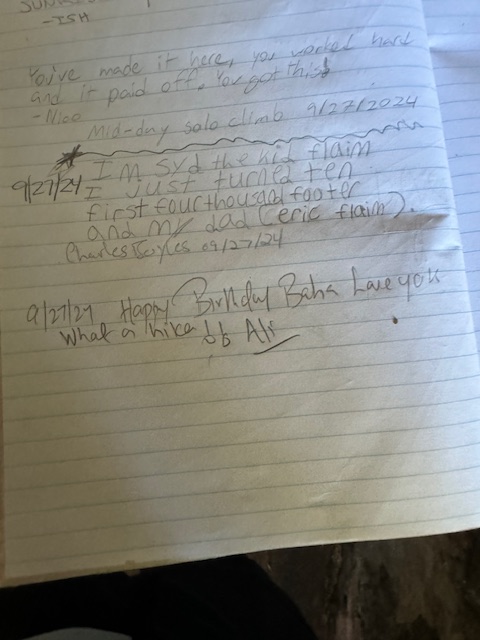 -ISH
You've made it here, you worked hard
and it paid off. You got this!
-Nico
Mid-day solo climb 9/27/2024
9/27/24 I'm syd the kid flaim
I just turned ten
first four thousand footer
and my dad (eric flaim).
Charles 09/27/24
9/27/24 Happy Birthday Baba Love you
What a hike Ali